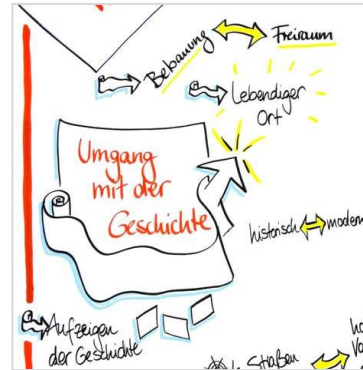 Bebauung
Freiraum
Lebendiger
Ort
Umgang
mit der
Geschichte
historisch
modern
Aufzeigen
der Geschichte
Straßen